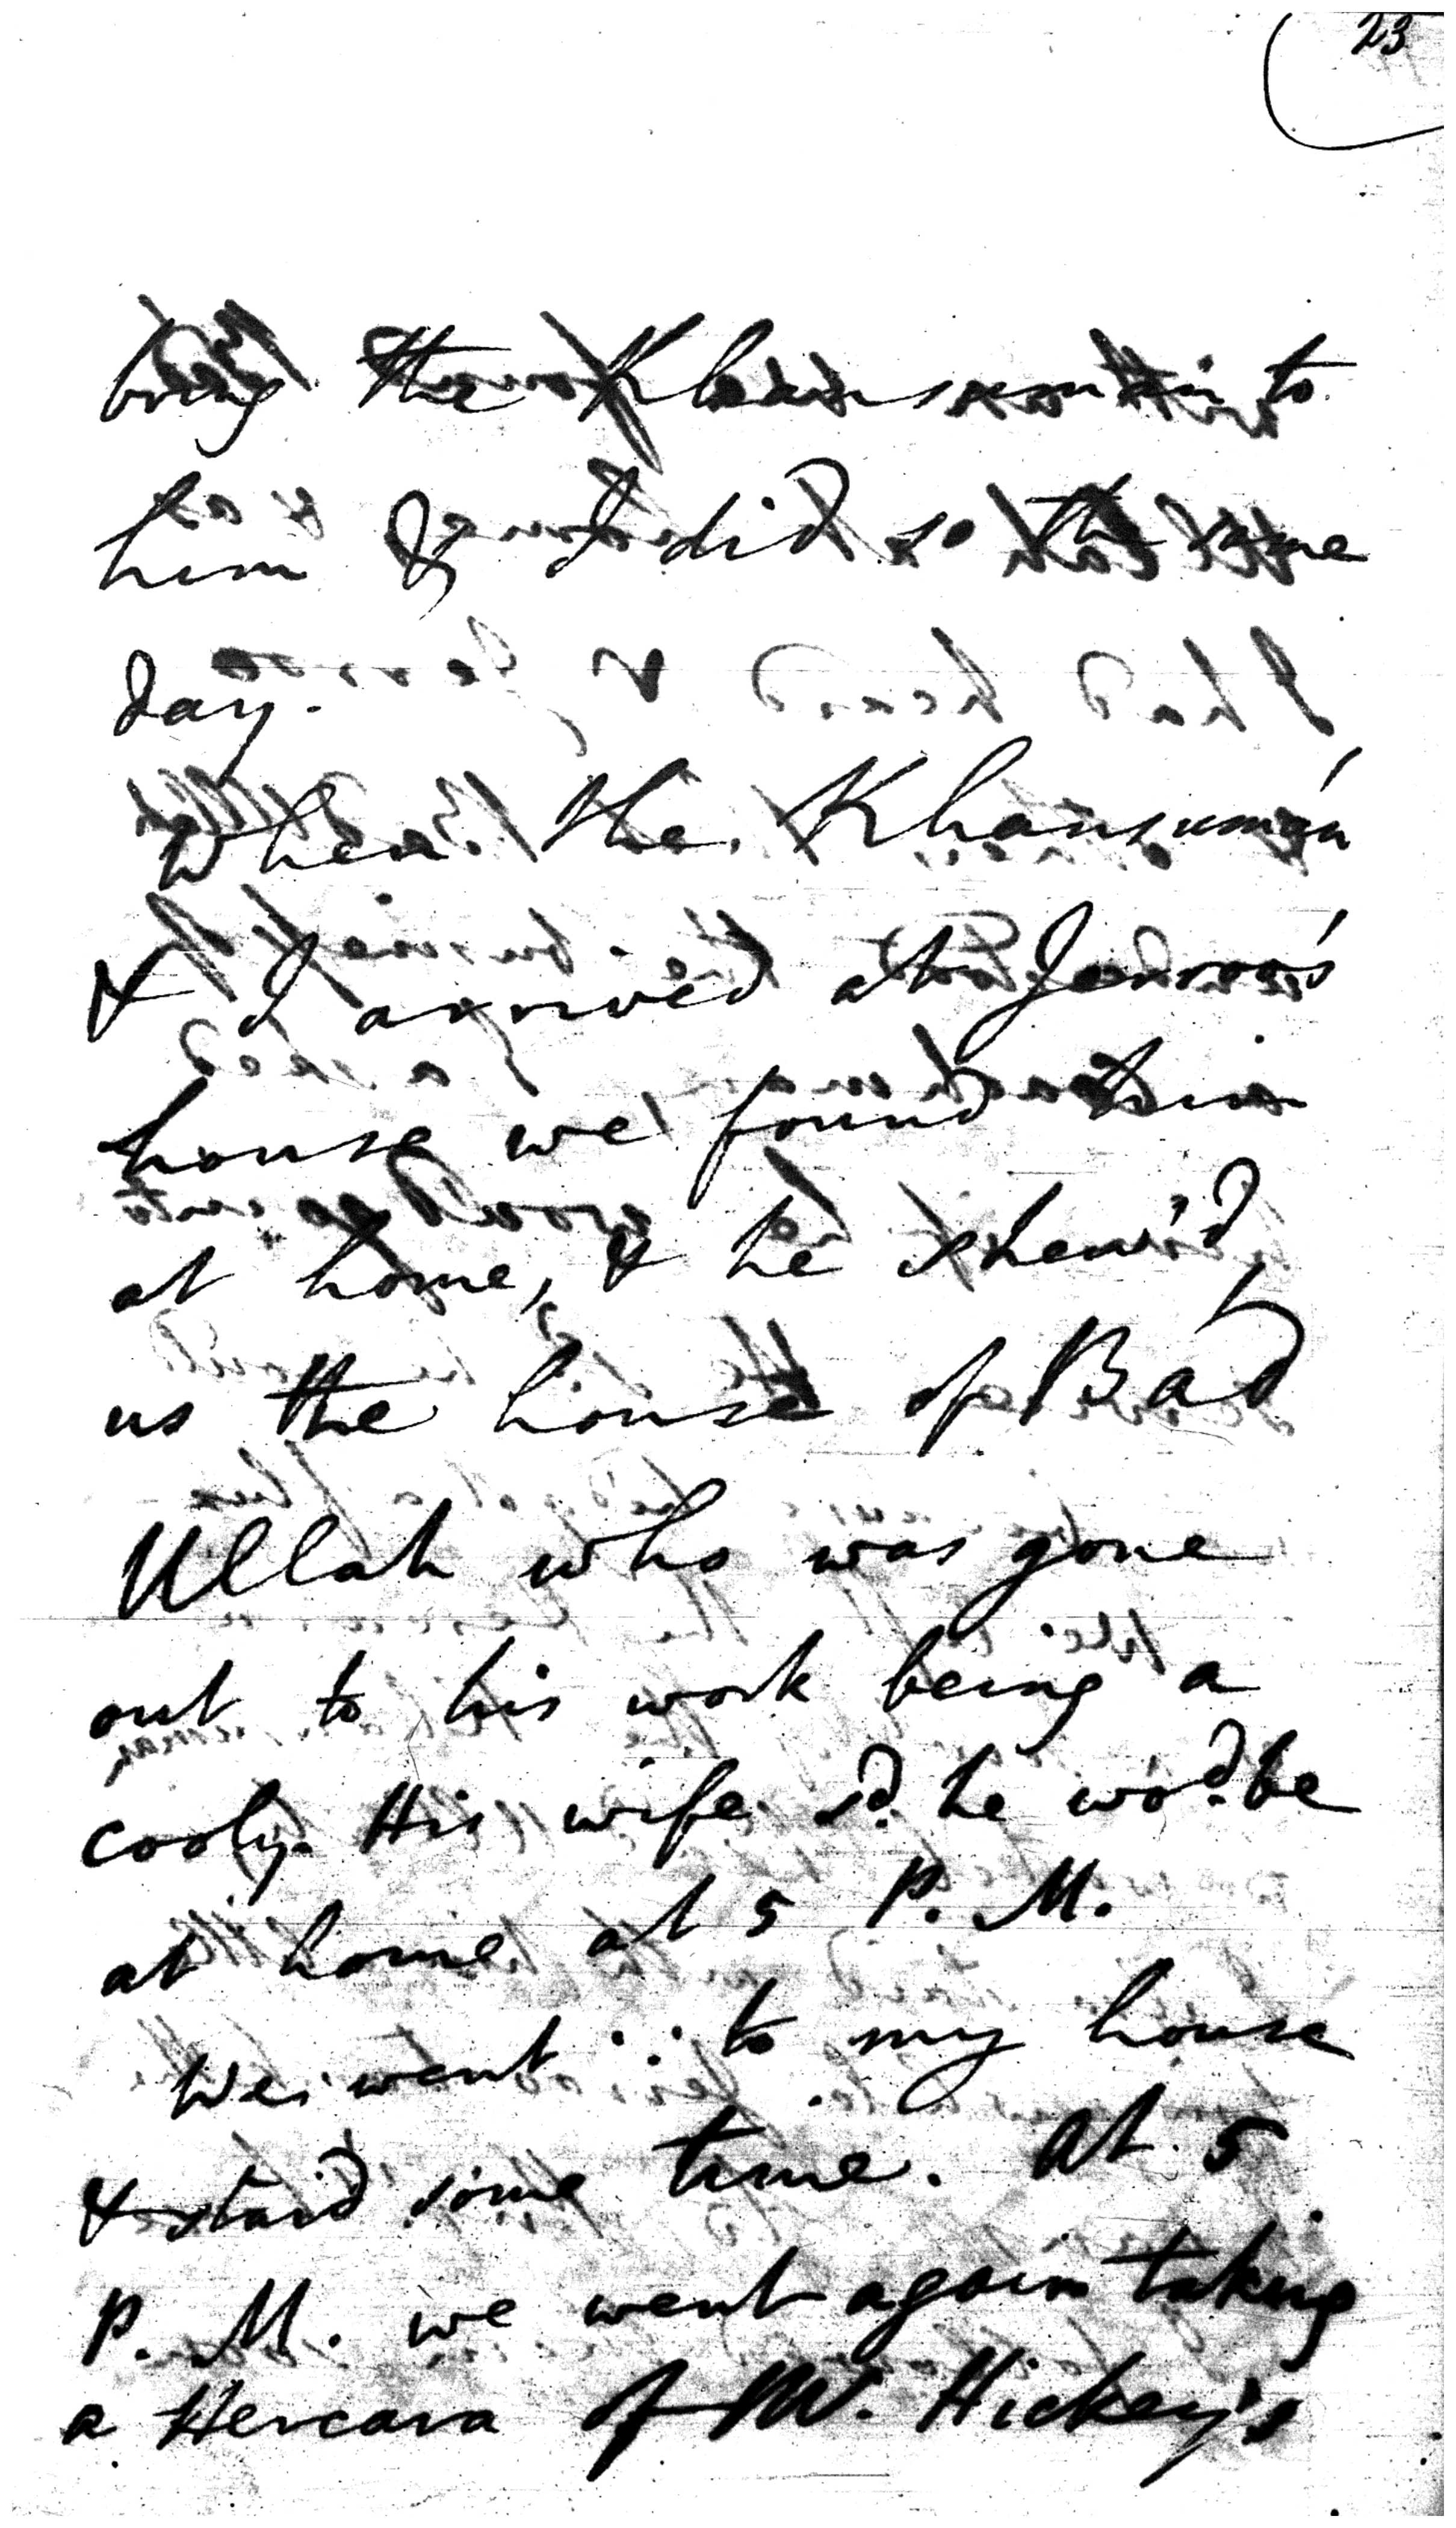 23
bring the Khansaman to
him & I did so the same
day.
When the Khansumán
& I arrived at Jenoo's
house we found him
at home, & he shew'd
us the house of Bád
Ullah who was gone
out to his work being a
cooly. His wife sd. he wod. be
at home at 5 P. M.
We went to my house
& staid some time. At 5
P. M. we went again taking
a Hercara of W. Hickey's